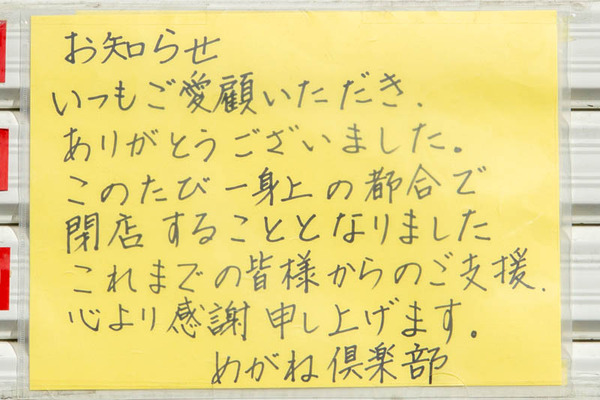 お知らせ
いつもご愛顧いただき、
ありがとうございました。
このたび一身上の都合で
閉店することとなりました
これまでの皆様からのご支援、
心より感謝申し上げます。
めがね倶楽部